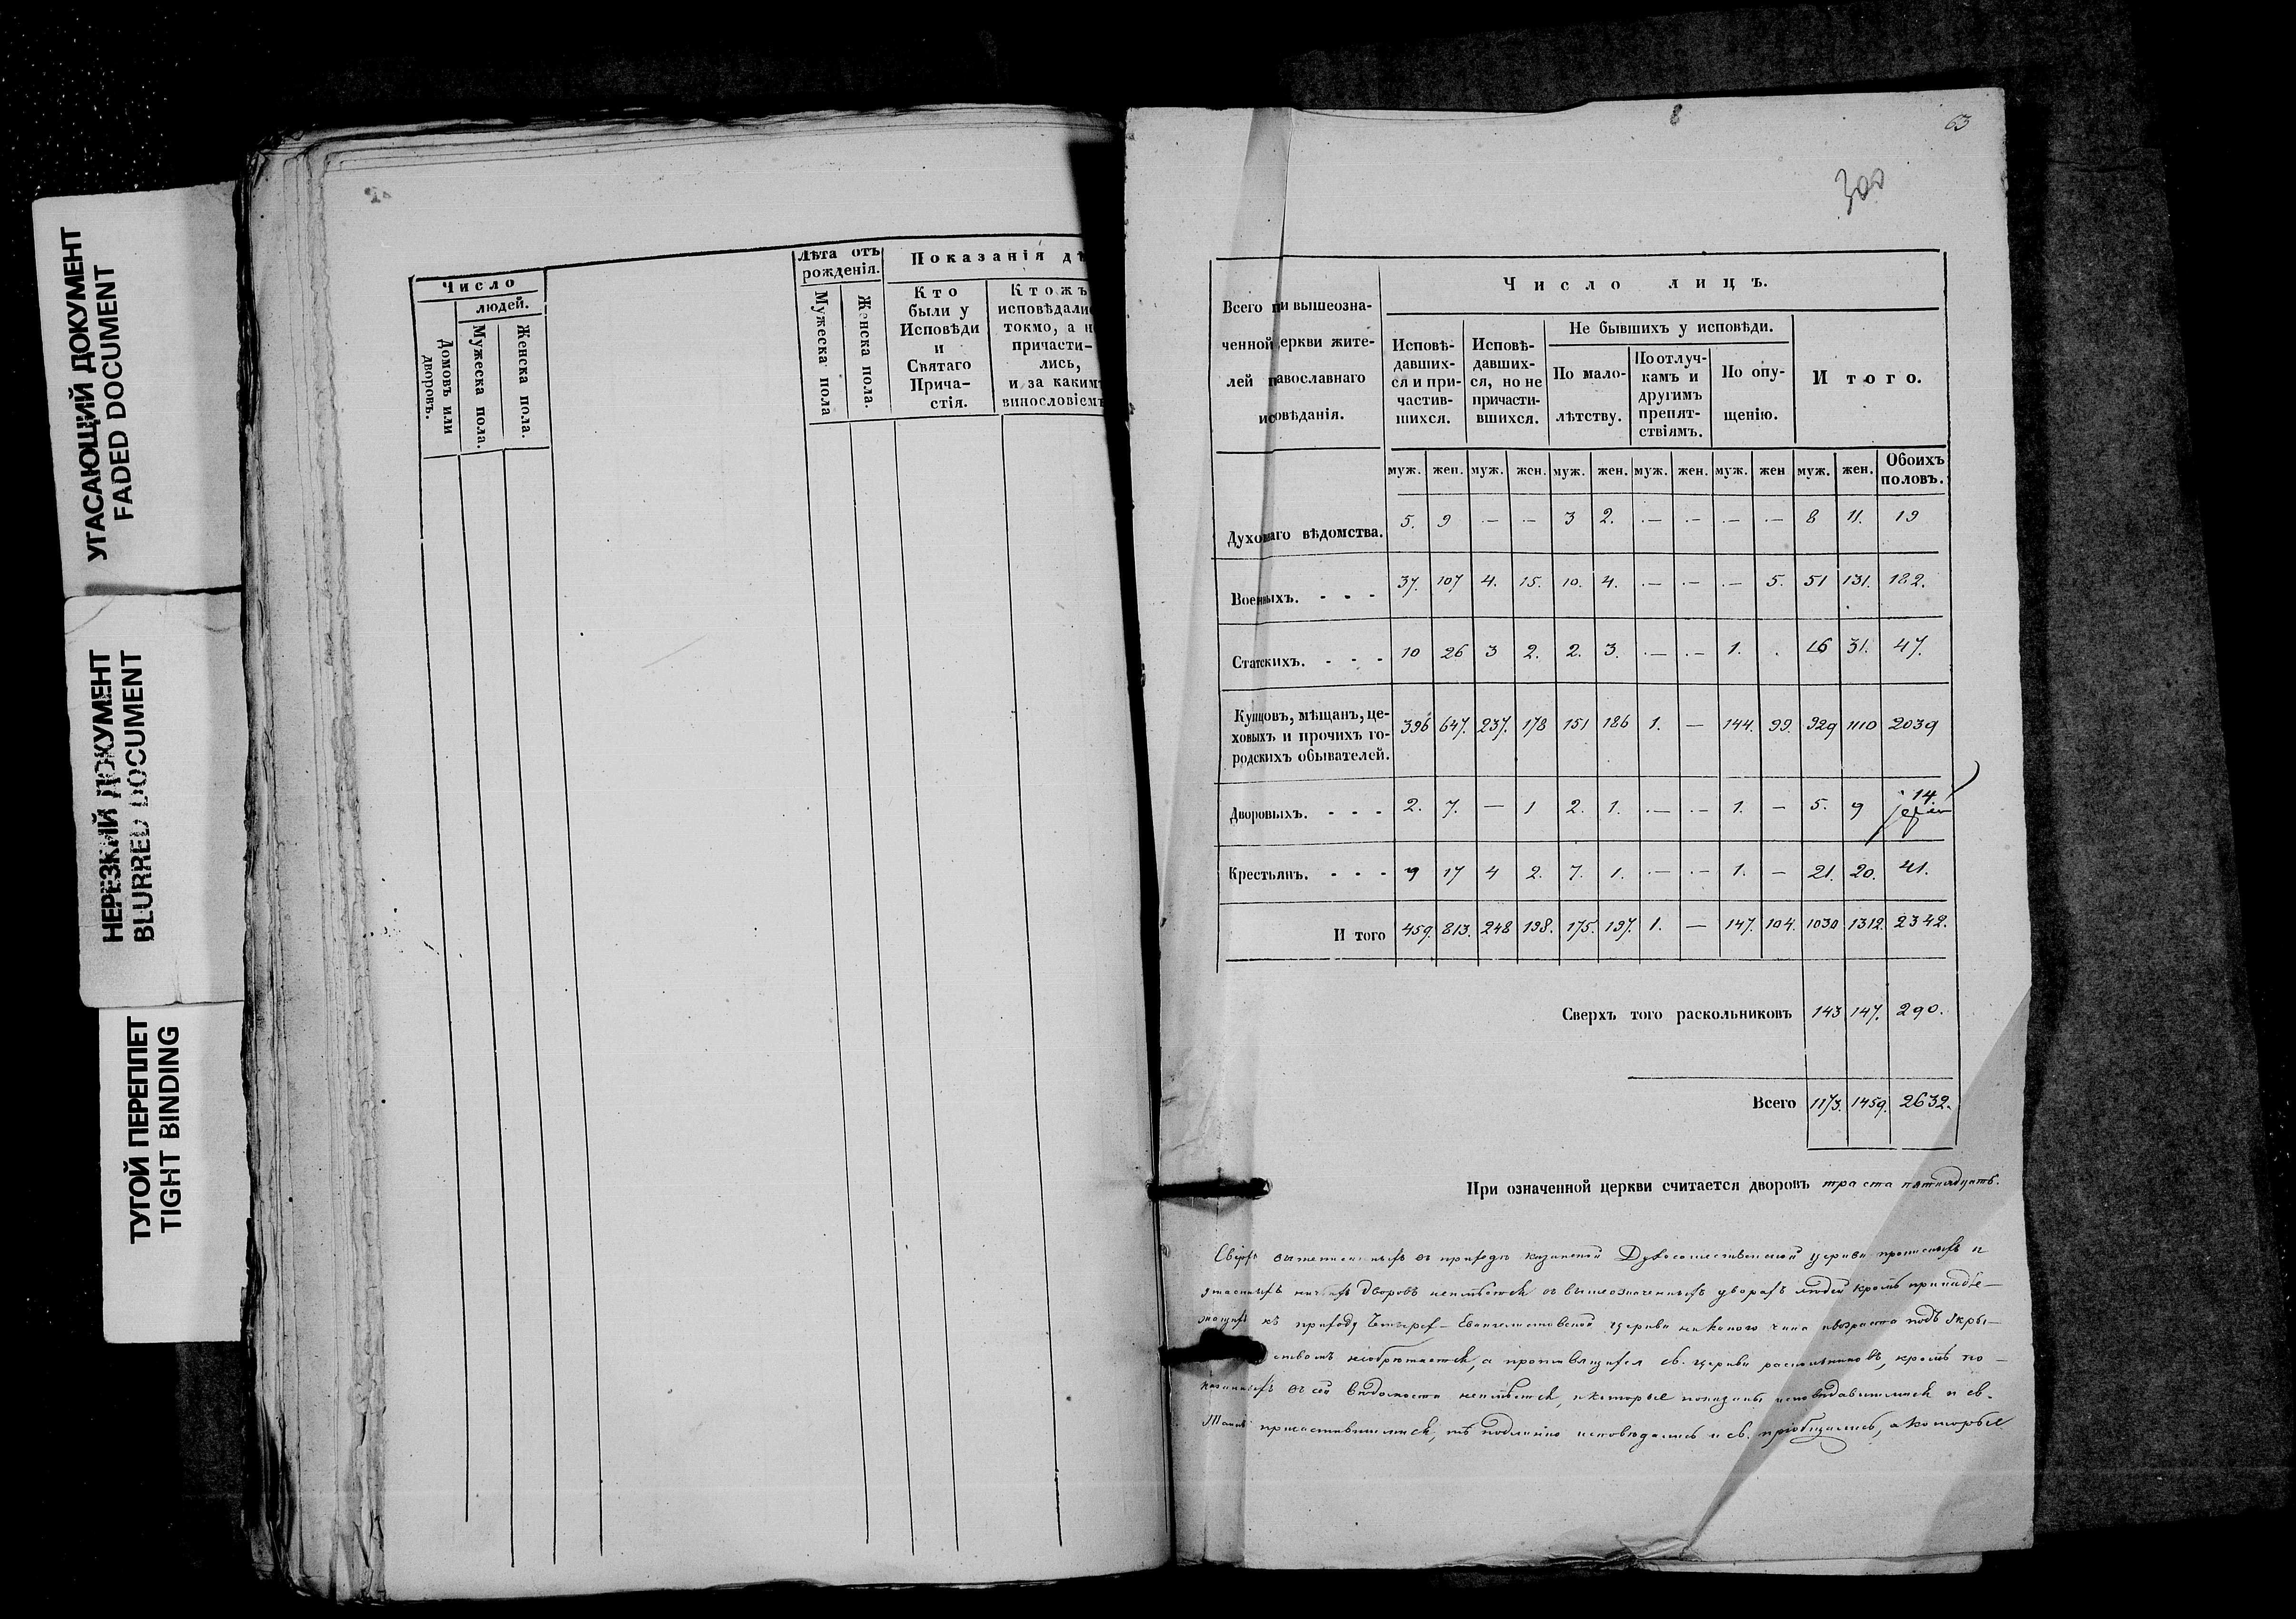 УГАСАЮЩИЙ ДОКУМЕНТ
FADED DOCUMENT
НЕРЕЗКИЙ ДОКУМЕНТ
BLURRED DOCUMENT
ТУГОЙ ПЕРЕПЛЕТ
TIGHT BINDING
Число
людей.
Домовъ или дворовъ.
Мужеска пола.
Женска пола.
Лѣта отъ
рожденія.
Мужеска пола
Женска пола.
Показанія дѣ
Кто
были у
Исповѣди
и
Святаго
Прича-
стія.
Ктожъ
исповѣдалис
токмо, а н
причасти-
лись,
и за какимъ
винословіемъ
8
63
300
Всего при вышеозна-
ченной церкви жите-
лей православнаго
исповѣданія.
Число лицъ.
Исповѣ-
давших-
ся и при-
частив-
шихся.
Исповѣ-
давших-
ся, но не
причасти-
вшихся.
Не бывшихъ у исповѣди.
По мало-
лѣтству.
По отлуч-
камъ и
другимъ
препят-
ствіямъ.
По опу-
щенію.
Итого.
муж. жен. муж. жен. муж. жен. муж. жен. муж. жен муж. жен. Обоихъ половъ.
Духовнаго вѣдомства. 5. 9 — — 3 2. — — — — 8 11. 19
Военныхъ. 37. 107 4. 15. 10. 4. — — — 5. 51 131. 182.
Статскихъ. 10 26 3 2. 2. 3. — — 1. . 16 31. 47.
Купцовъ, мѣщанъ, це-
ховыхъ и прочихъ го-
родскихъ обывателей.
396 647. 237. 178 151 186 1. — 144. 99. 929 1110 2039
Дворовыхъ. 2. 7. — 1 2. 1. — — 1. — 5. 9 14.
Крестьянъ. 9 17 4 2. 7. 1. — — 1. — 21. 20. 41.
Итого 459. 813. 248 198. 175. 197. 1. — 147. 104. 1030 1312. 2342.
Сверхъ того раскольниковъ 143 147. 290.
Всего 1173. 1459. 2632.
При означенной церкви считается дворовъ три ста пятнадцать.
Сверхъ въ приходѣ казанской Духосошественской церкви и
дворовъ неимѣется въ вышеозначенныхъ дворахъ людей кромѣ принадле-
къ приходу Четырех-Евангелистовской церкви никакого чина и возраста подъ укры-
необрѣтается, а противящихся св. церкви раскольниковъ, кромѣ по-
казанныхъ въ сей вѣдомости неимѣется, и которые показаны исповѣдавшимися и св.
Таинъ причастившимися, тѣ подлинно исповѣдались и св. пріобщились, а которые